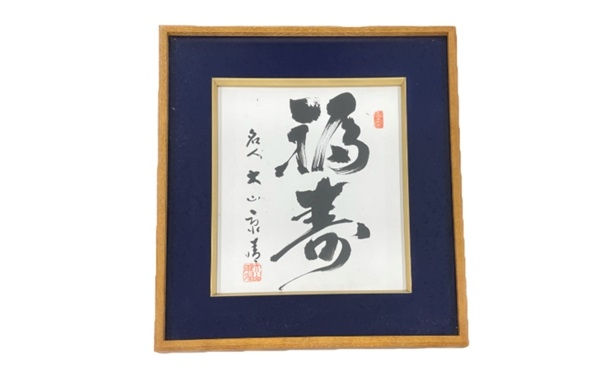 福寿
名人 大山康晴